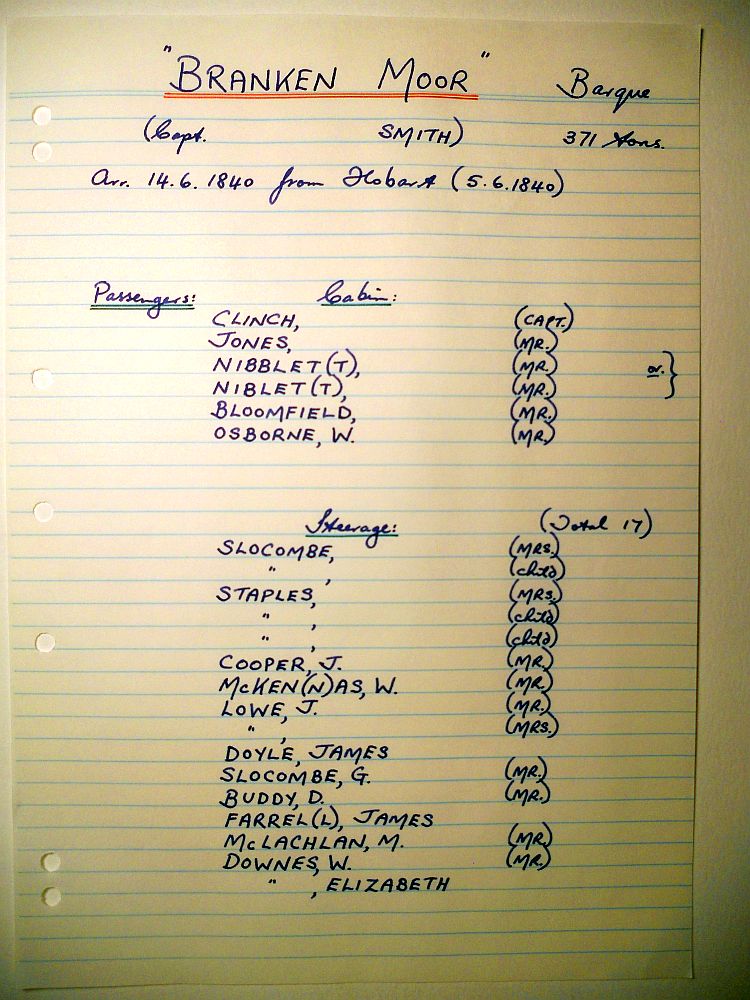 "BRANKEN MOOR" Barque
(Capt. SMITH) 371 tons.
Arr. 14.6.1840 from Hobart (5.6.1840)
Passengers: Cabin:
CLINCH, (CAPT.)
JONES, (MR.)
NIBBLET(T), (MR.) or. }
NIBLET(T), (MR.)
BLOOMFIELD, (MR.)
OSBORNE, W. (MR.)
Steerage: (Total 17)
SLOCOMBE, (MRS.)
" , (child)
STAPLES, (MRS.)
" , (child)
" , (child)
COOPER, J. (MR.)
McKEN(N)AS, W. (MR.)
LOWE, J. (MR.)
" , (MRS.)
DOYLE, JAMES
SLOCOMBE, G. (MR.)
BUDDY, D. (MR.)
FARREL(L), JAMES
McLACHLAN, M. (MR.)
DOWNES, W. (MR.)
" , ELIZABETH